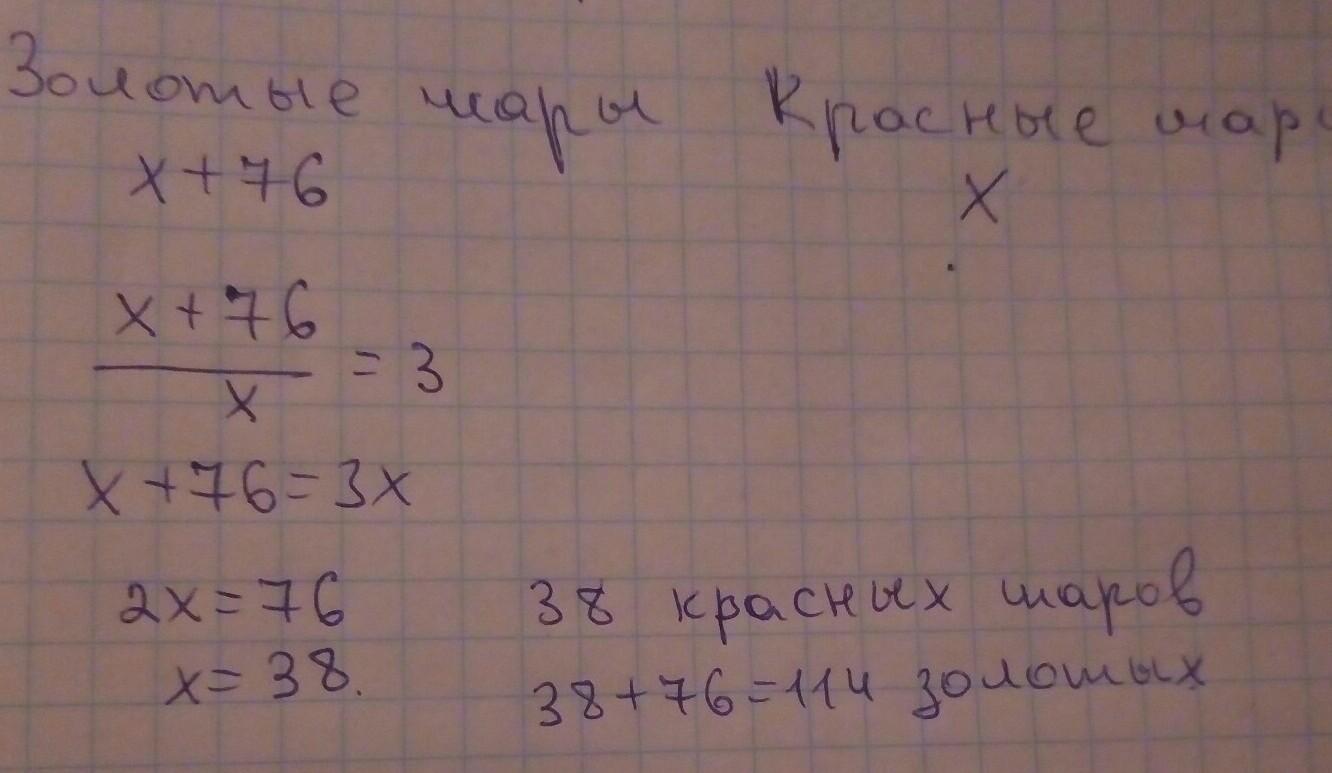 Золотые шары Красные шары
x+76 x
x+76
/x = 3
x+76=3x
2x=76 38 красных шаров
x=38. 38+76=114 золотых